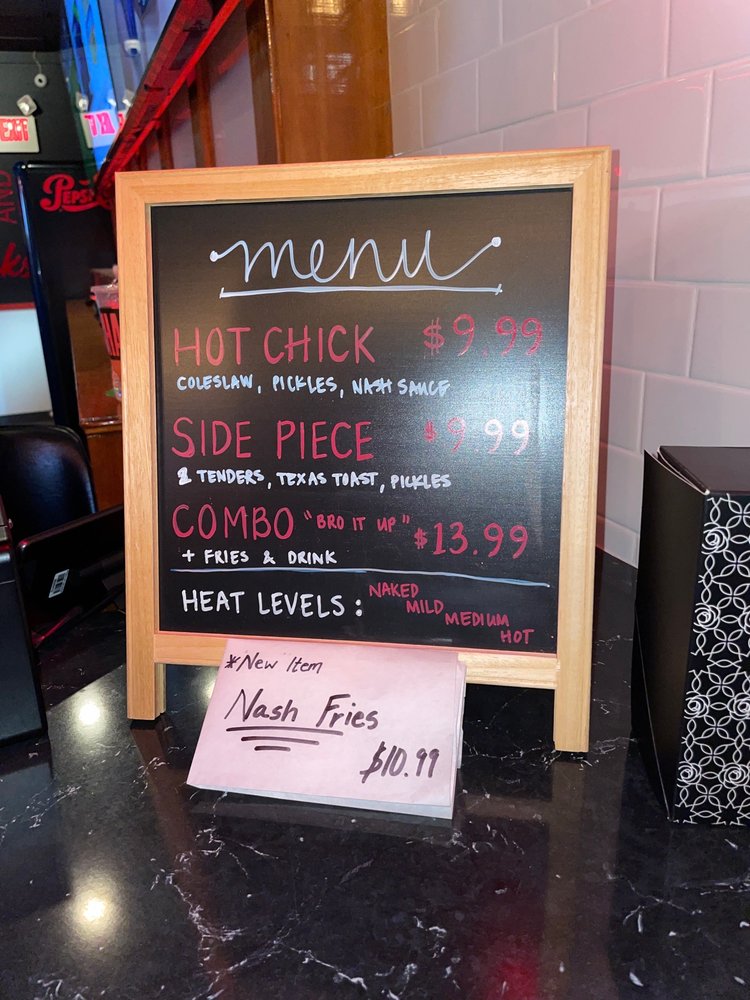 EXIT
PEPSI
AND
menu
HOT CHICK $9.99
COLESLAW, PICKLES, NASH SAUCE
SIDE PIECE $9.99
2 TENDERS, TEXAS TOAST, PICKLES
COMBO "BRO IT UP" $13.99
+ FRIES & DRINK
HEAT LEVELS: NAKED
MILD
MEDIUM
HOT
*New Item
Nash Fries
$10.99